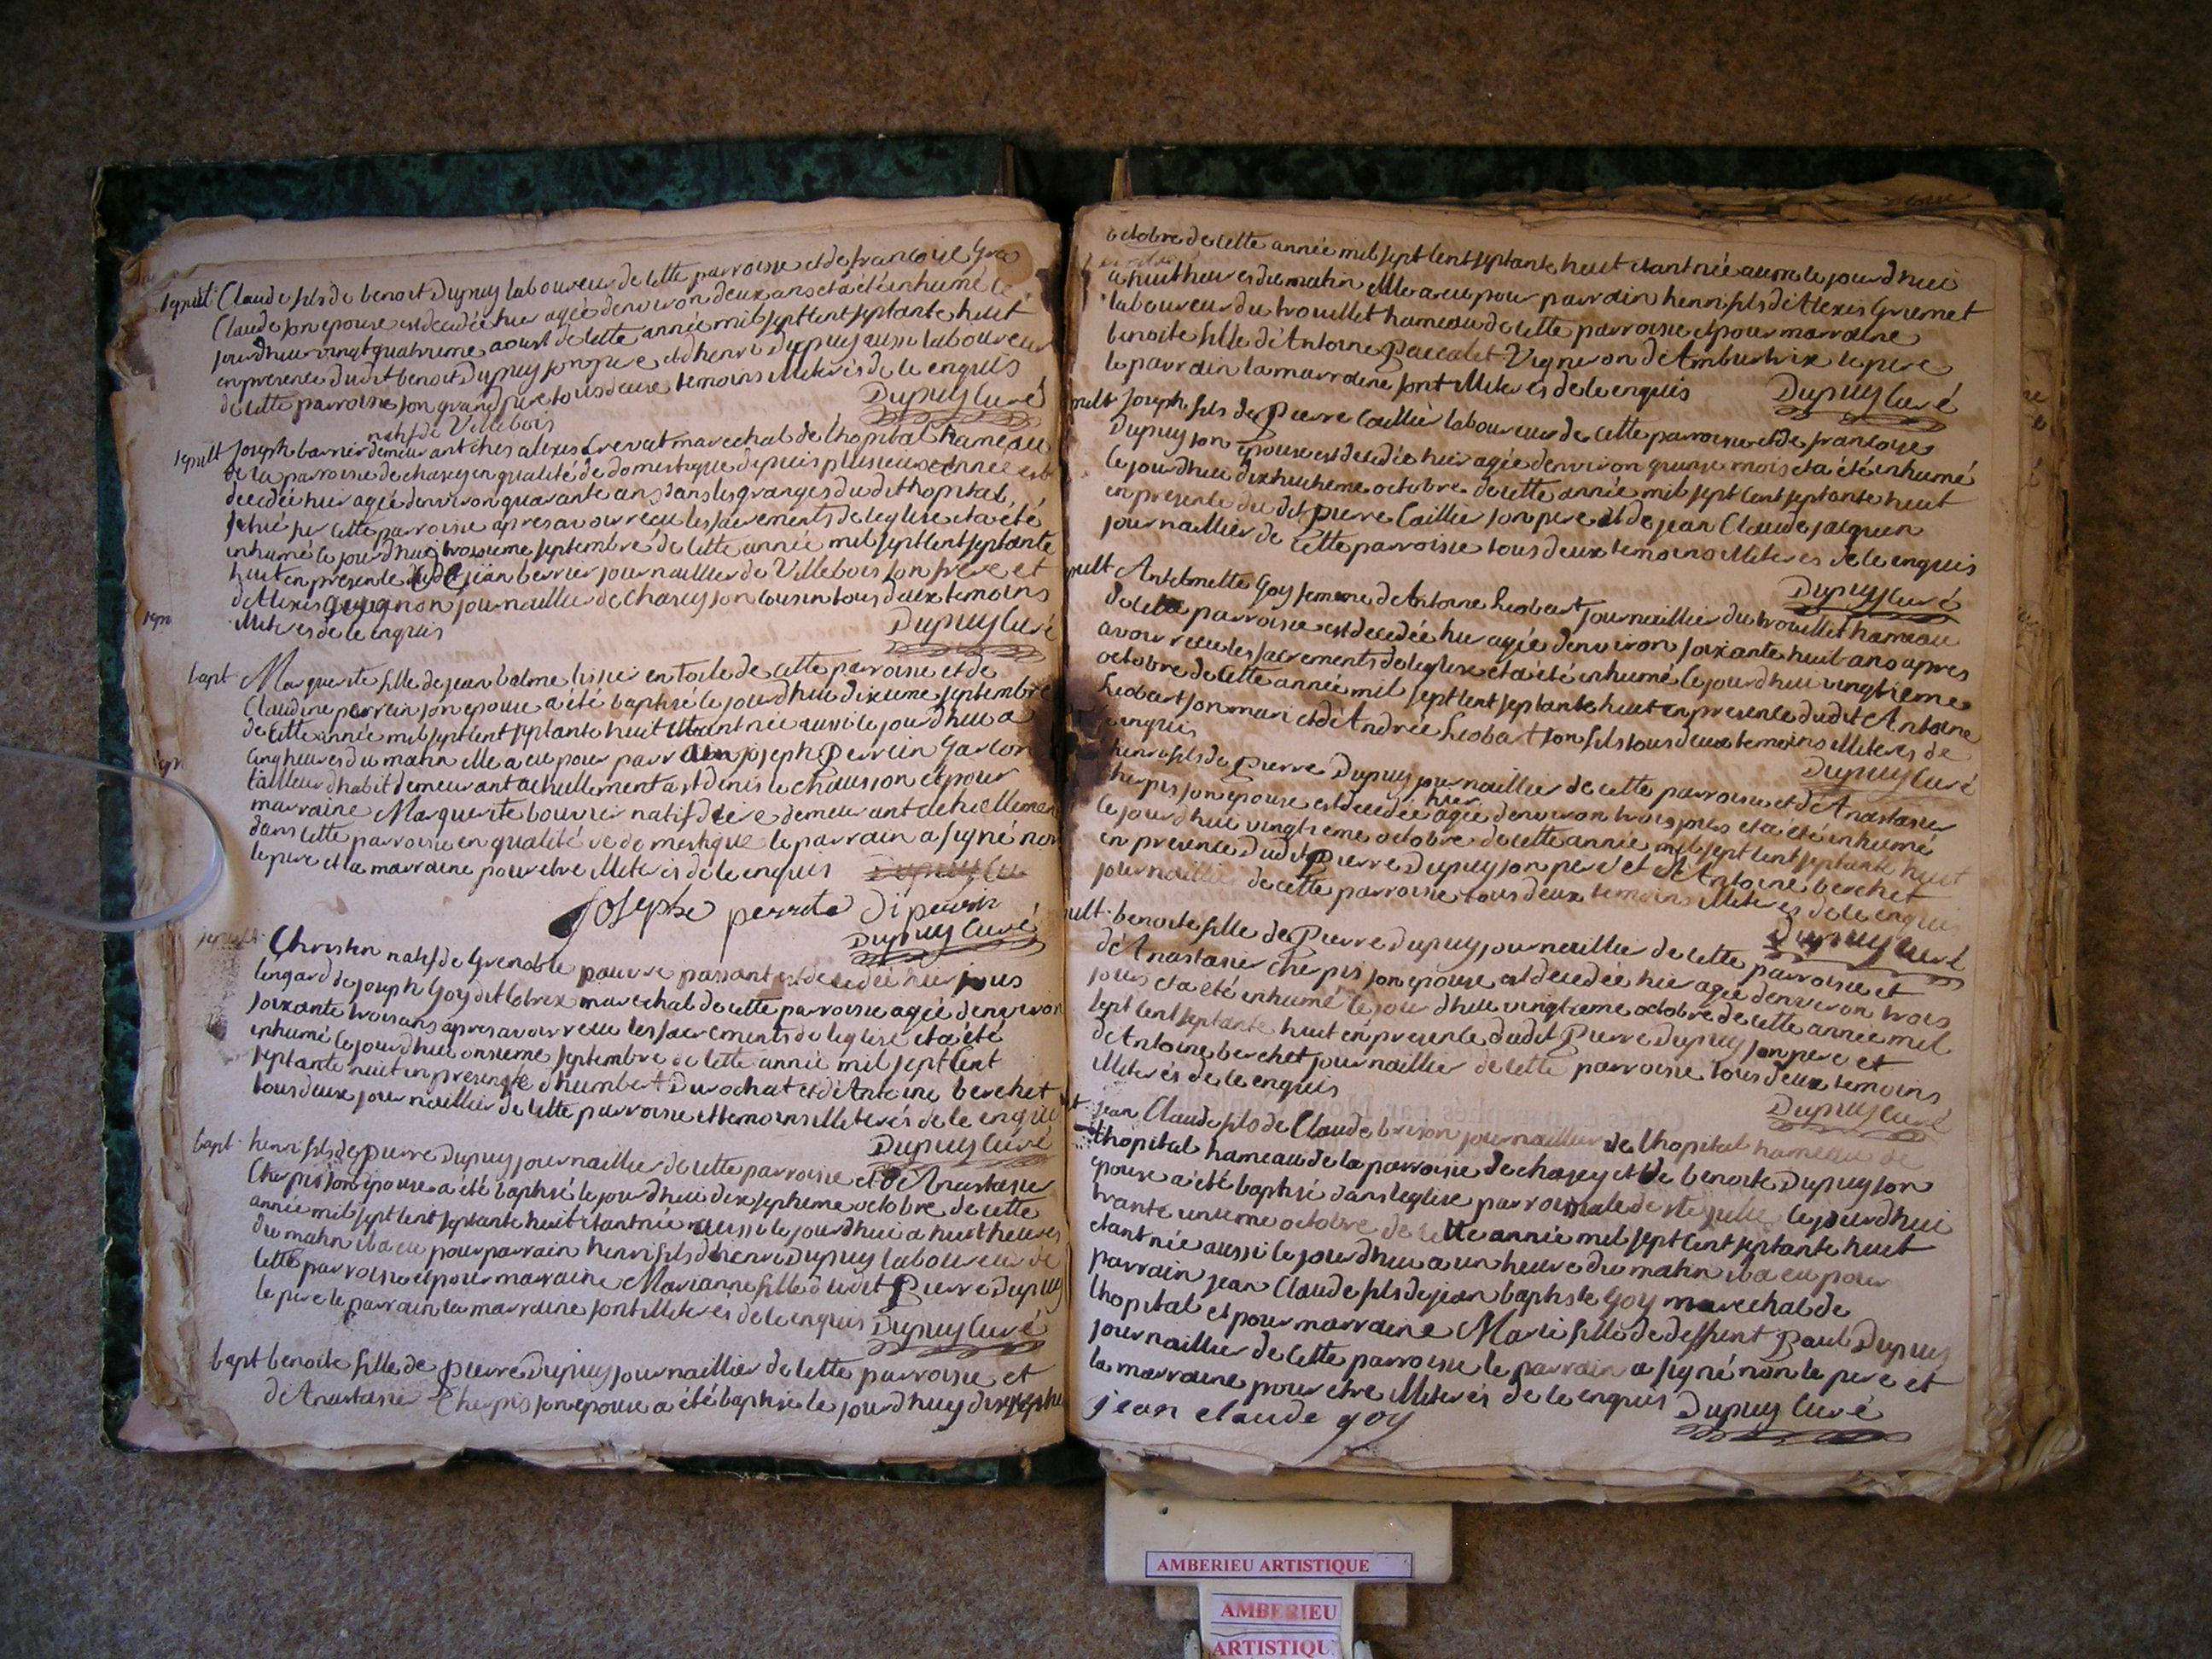 sepult Claude fils de benoit Dupuy laboureur de cette parroisse et de francoise
Claude son epouse est decedée hier agée denviron deux ans et a été inhumé le
jourdhui vingt quatrieme aoust de cette année mil sept cent septante huit
en presence dudit benoit Dupuy son pere et d'henri Dupuy aussi laboureur
de cette parroisse son grand pere tous deux temoins illiterés de ce enquis
Dupuy curé
natif de Villebois
sepult Joseph barrier demeurant ches alexis crevat marechal de lhopital hameau
de la parroisse de chasey en qualité de domestique depuis plusieurs année est
decedée hier agée denviron quarante ans dans les granges du dit hopital
situé sur cette parroisse apres avoir recu les sacrements de leglise et a été
inhumé le jourdhui troisieme septembre de cette année mil sept cent septante
huit en presence de jean berrier journaillier de Villebois son frere et
d'Alexis journaillier de Chasey son cousin tous deux temoins
illiterés de ce enquis
Dupuy Curé
bapt Marguerite fille de jean balme tissier en toile de cette parroisse et de
Claudine perrin son epouse a été baptisé le jourdhui dixieme septembre
de cette année mil sept cent septante huit etant née aussi le jourdhui a
cinq heures du matin elle a eu pour parrain joseph Perrin garcon
tailleur dhabit demeurant actuellement a st denis le chausson et pour
marraine Marguerite bouvier natif de demeurant actuellement
dans cette parroisse en qualité de domestique le parrain a signé non
le pere et la marraine pour etre illiterés de ce enquis
joseph
Dupuy Curé
sepult Christin natif de Grenoble pauvre passant est decedée hier sous
lengard de joseph Goy dit marechal de cette parroisse agée denviron
soixante trois ans apres avoir recu les sacrements de leglise et a été
inhumé le jourdhui onsieme septembre de cette année mil sept cent
septante huit en presence d'humbert Durochat et d'Antoine berchet
tous deux journaillier de cette parroisse et temoins illiterés de ce enquis
Dupuy Curé
bapt henri fils de Pierre Dupuy journaillier de cette parroisse et d'Anastasie
Cherpis son epouse a été baptisé le jourdhui dix septieme octobre de cette
année mil sept cent septante huit etant née aussi le jourdhui a huit heures
du matin il a eu pour parrain henri fils d'henri Dupuy laboureur de
cette parroisse et pour marraine Marianne fille dudit Pierre Dupuy
le pere le parrain la marraine sont illiterés de ce enquis
Dupuy Curé
bapt benoite fille de pierre Dupuy journaillier de cette parroisse et
d'Anastasie Cherpis son epouse a été baptisé le jourdhuy dix septieme
octobre de cette année mil sept cent septante huit etant née aussi le jourdhui
a huit heures du matin elle a eu pour parrain henri fils d'Alexis Grumet
laboureur du trouillet hameau de cette parroisse et pour marraine
benoite fille d'Antoine Vigneron d'Ambutrix le pere
le parrain la marraine sont illiterés de ce enquis
Dupuy Curé
Joseph fils de Pierre Caillier laboureur de cette parroisse et de francoise
Dupuy son epouse est decedée hier agée denviron quinse mois et a été inhumé
le jourdhui dix huitieme octobre de cette année mil sept cent septante huit
en presence du dit pierre Caillier son pere et de jean Claude jacquin
journaillier de cette parroisse tous deux temoins illiterés de ce enquis
Dupuy Curé
Antelmette Goy femme d'Antoine Liobart journaillier du trouillet hameau
de cette parroisse est decedée hier agée denviron soixante huit ans apres
avoir recu les sacrements de leglise et a été inhumé le jourdhui vingtieme
octobre de cette année mil sept cent septante huit en presence dudit Antoine
Liobart son mari et d'Andrée Liobart son fils tous deux temoins illiterés de
ce enquis
Dupuy Curé
henri fils de Pierre Dupuy journaillier de cette parroisse et d'Anastasie
Cherpis son epouse est decedée hier agée denviron trois jours et a été inhumé
le jourdhui vingtieme octobre de cette année mil sept cent septante huit
en presence dudit Pierre Dupuy son pere et d'Antoine berchet
journaillier de cette parroisse tous deux temoins illiterés de ce enquis
Dupuy Curé
benoite fille de Pierre Dupuy journaillier de cette parroisse et
d'Anastasie Cherpis son epouse est decedée hier agée denviron trois
jours et a été inhumé le jourdhui vingtieme octobre de cette année mil
sept cent septante huit en presence dudit Pierre Dupuy son pere et
d'Antoine berchet journaillier de cette parroisse tous deux temoins
illiterés de ce enquis
Dupuy Curé
jean Claude fils de Claude brison journaillier de lhopital hameau de
lhopital hameau de la parroisse de chasey et de benoite Dupuy son
epouse a été baptisé dans leglise parroissiale de ste julie le jourdhui
trante unieme octobre de cette année mil sept cent septante huit
etant née aussi le jourdhui a un heure du matin il a eu pour
parrain jean Claude fils de jean baptiste Goy marechal de
lhopital et pour marraine Marie fille de deffunt Paul Dupuy
journaillier de cette parroisse le parrain a signé non le pere et
la marraine pour etre illiterés de ce enquis
Dupuy Curé
jean claude goy
AMBERIEU ARTISTIQUE
AMBERIEU
ARTISTIQU